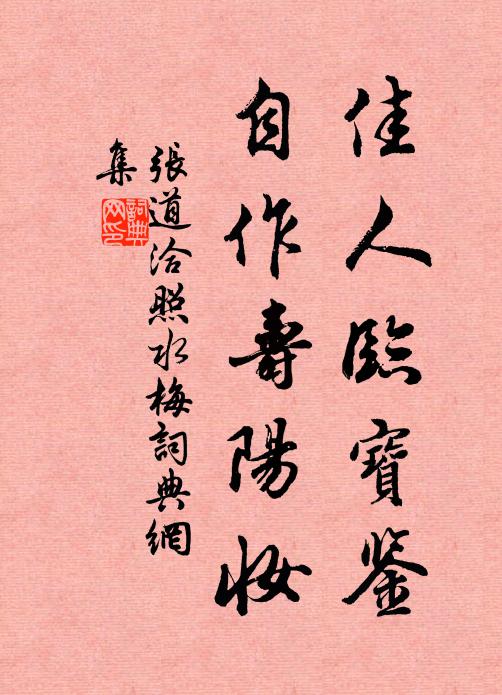 佳人臨寶鉴
自作壽陽妝
張道洽照水梅詞典網
集
詞典
网印